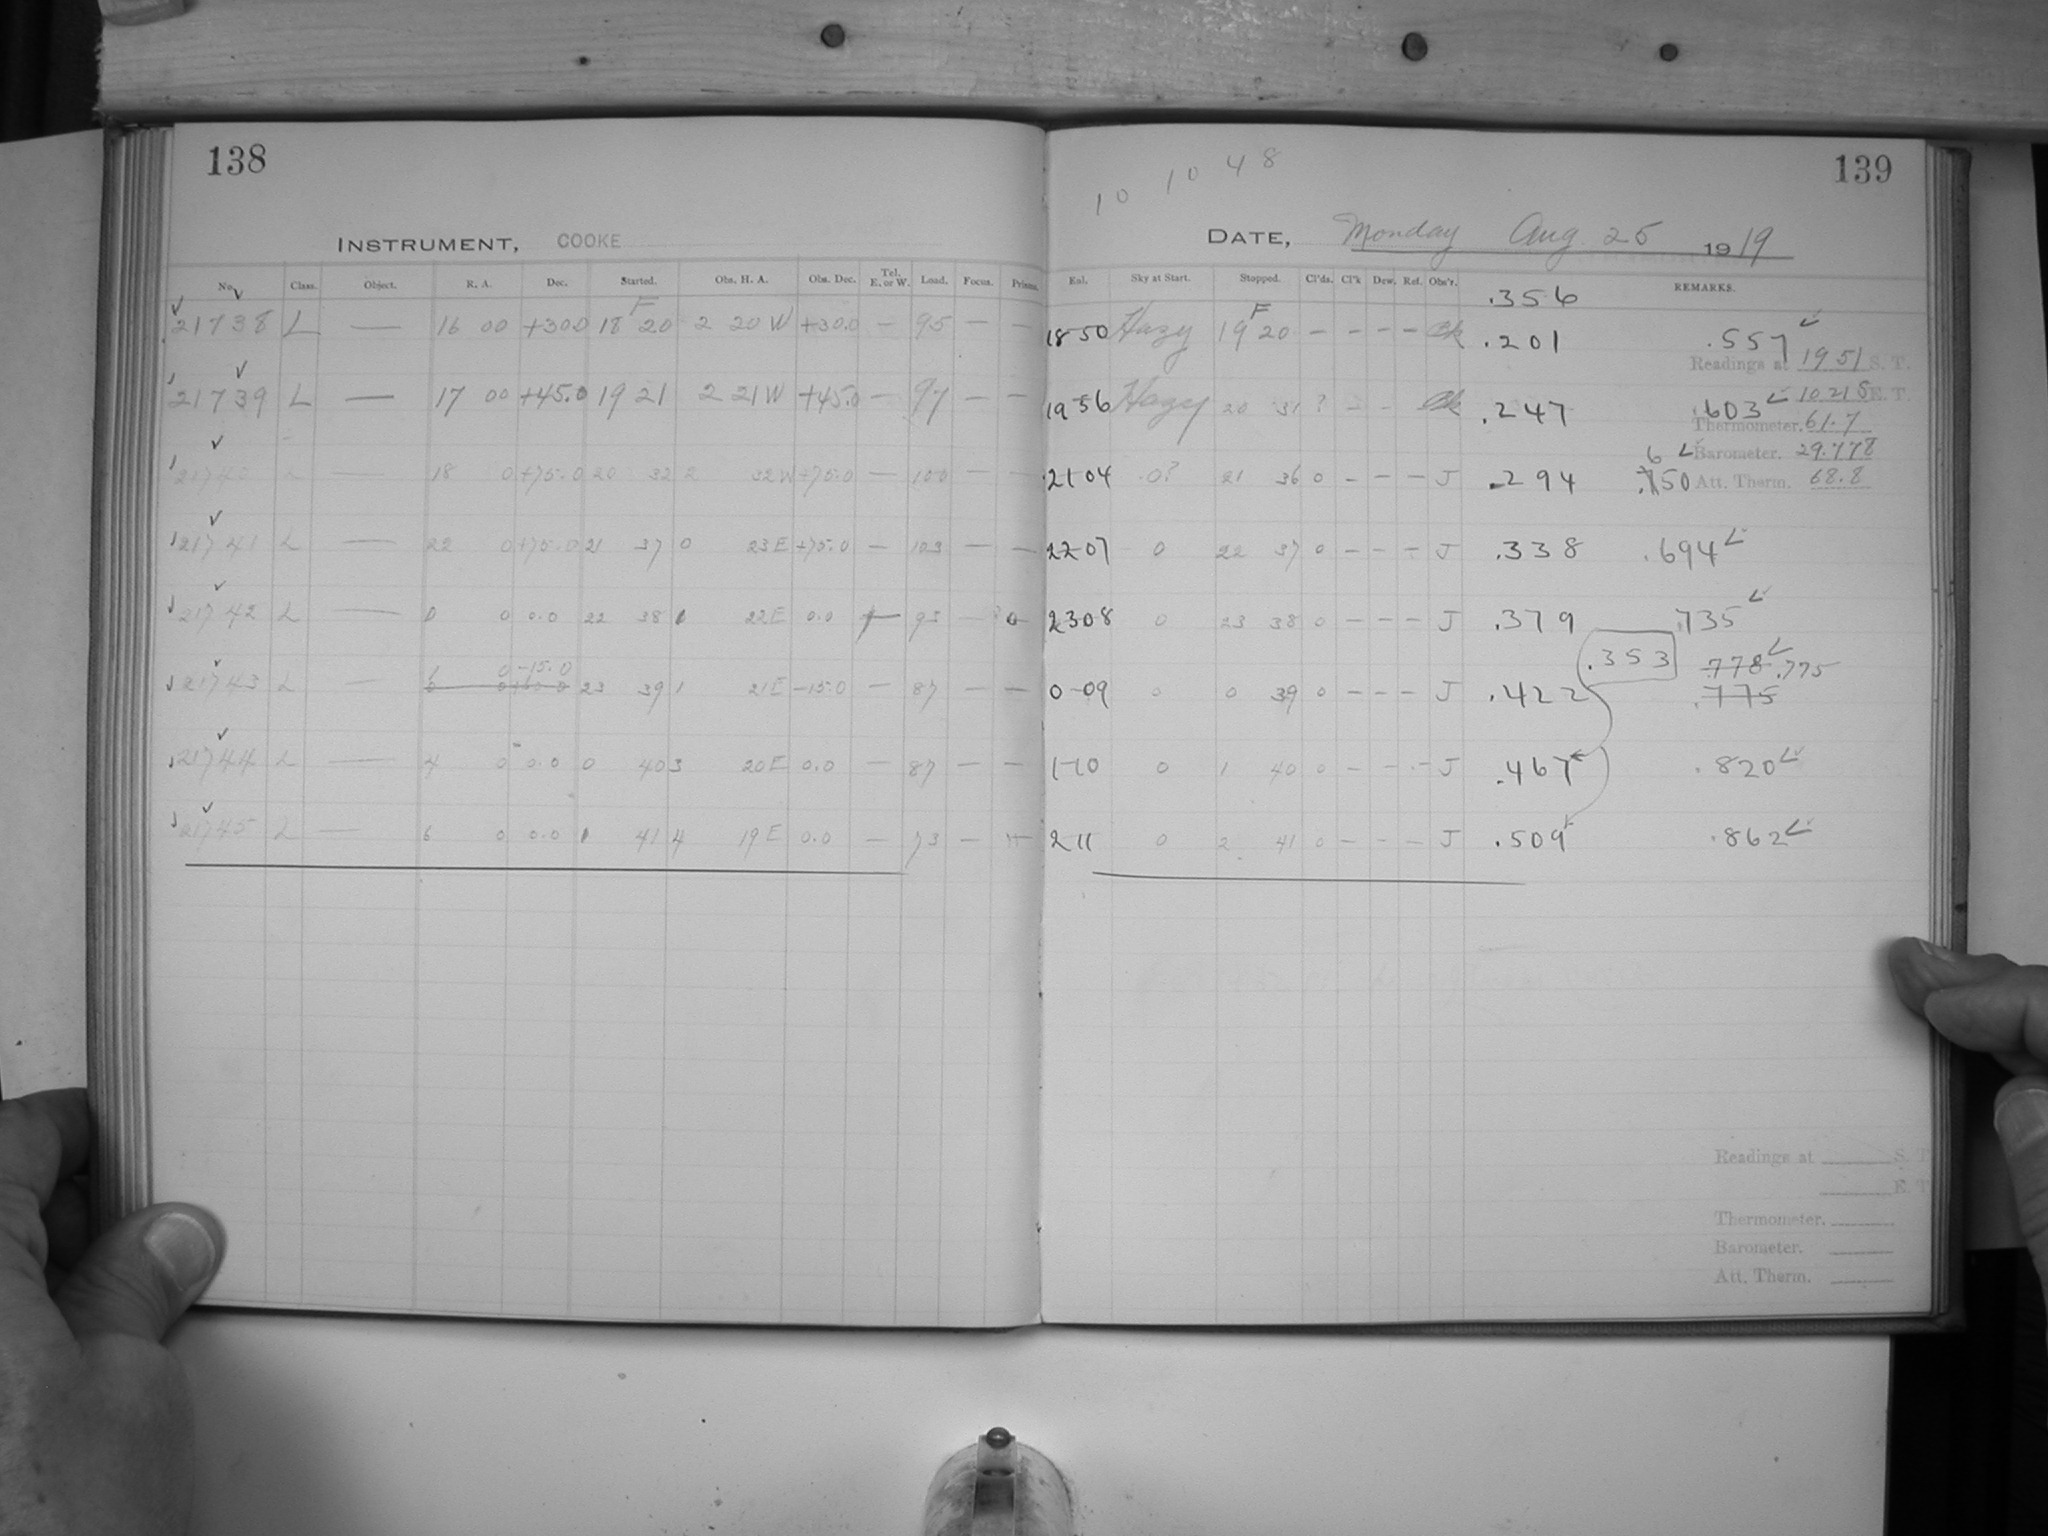 138
INSTRUMENT, COOKE
No. Class. Object. R. A. Dec. Started. Obs. H. A. Obs. Dec. Tel. E. or W. Load. Focus. Prisms.
21738 L — 16 00 +30.0 18 F 20 2 20 W +30.0 — 95 — —
21739 L — 17 00 +45.0 19 21 2 21 W +45.0 — 97 — —
21740 L — 18 0 +75.0 20 32 2 32 W +75.0 — 100 — —
21741 L — 22 0 +75.0 21 37 0 23 E +75.0 — 103 — —
21742 L — 0 0 0.0 22 38 1 22 E 0.0 — 93 —
21743 L — 0 -15.0 23 39 1 21 E -15.0 — 87 — —
21744 L — 4 0 0.0 0 40 3 20 E 0.0 — 87 — —
21745 L — 6 0 0.0 1 41 4 19 E 0.0 — 73 —
139
10 10 48
DATE, Monday Aug. 25 1919
Exl. Sky at Start. Stopped. Cl'ds. Cl'k Dew. Ref. Obs'r. REMARKS.
.356
18 50 Hazy 19 F 20 — — — — .201 .557
Readings at 19 51 S. T.
19 56 Hazy 20 31 ? — — .247 .603 10 21 5 E. T.
Thermometer. 61.7
6 Barometer. 29.778
21 04 0? 21 36 0 — — — J .294 .750 Att. Therm. 68.8
22 07 0 22 37 0 — — — J .338 .694
23 08 0 23 38 0 — — — J .379 .735
.353 .778 .775
0-09 0 0 39 0 — — — J .422 .775
1-10 0 1 40 0 — — — J .467 .820
2 11 0 2 41 0 — — — J .509 .862
Readings at S. T.
E. T.
Thermometer.
Barometer.
Att. Therm.